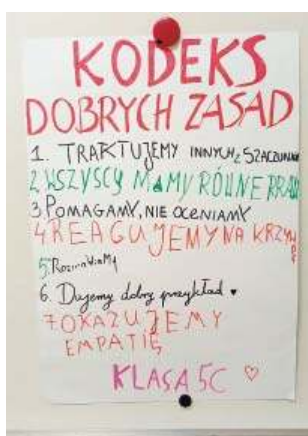 KODEKS
DOBRYCH ZASAD
1. TRAKTUJEMY INNYCH Z SZACUNKIEM
2. WSZYSCY MAMY RÓWNE PRAWA
3. POMAGAMY, NIE OCENIAMY
4. REAGUJEMY NA KRZYWDĘ
5. RozmawiaMy
6. Dajemy dobry przykład
7 OKAZUJEMY
EMPATIĘ
KLASA 5C